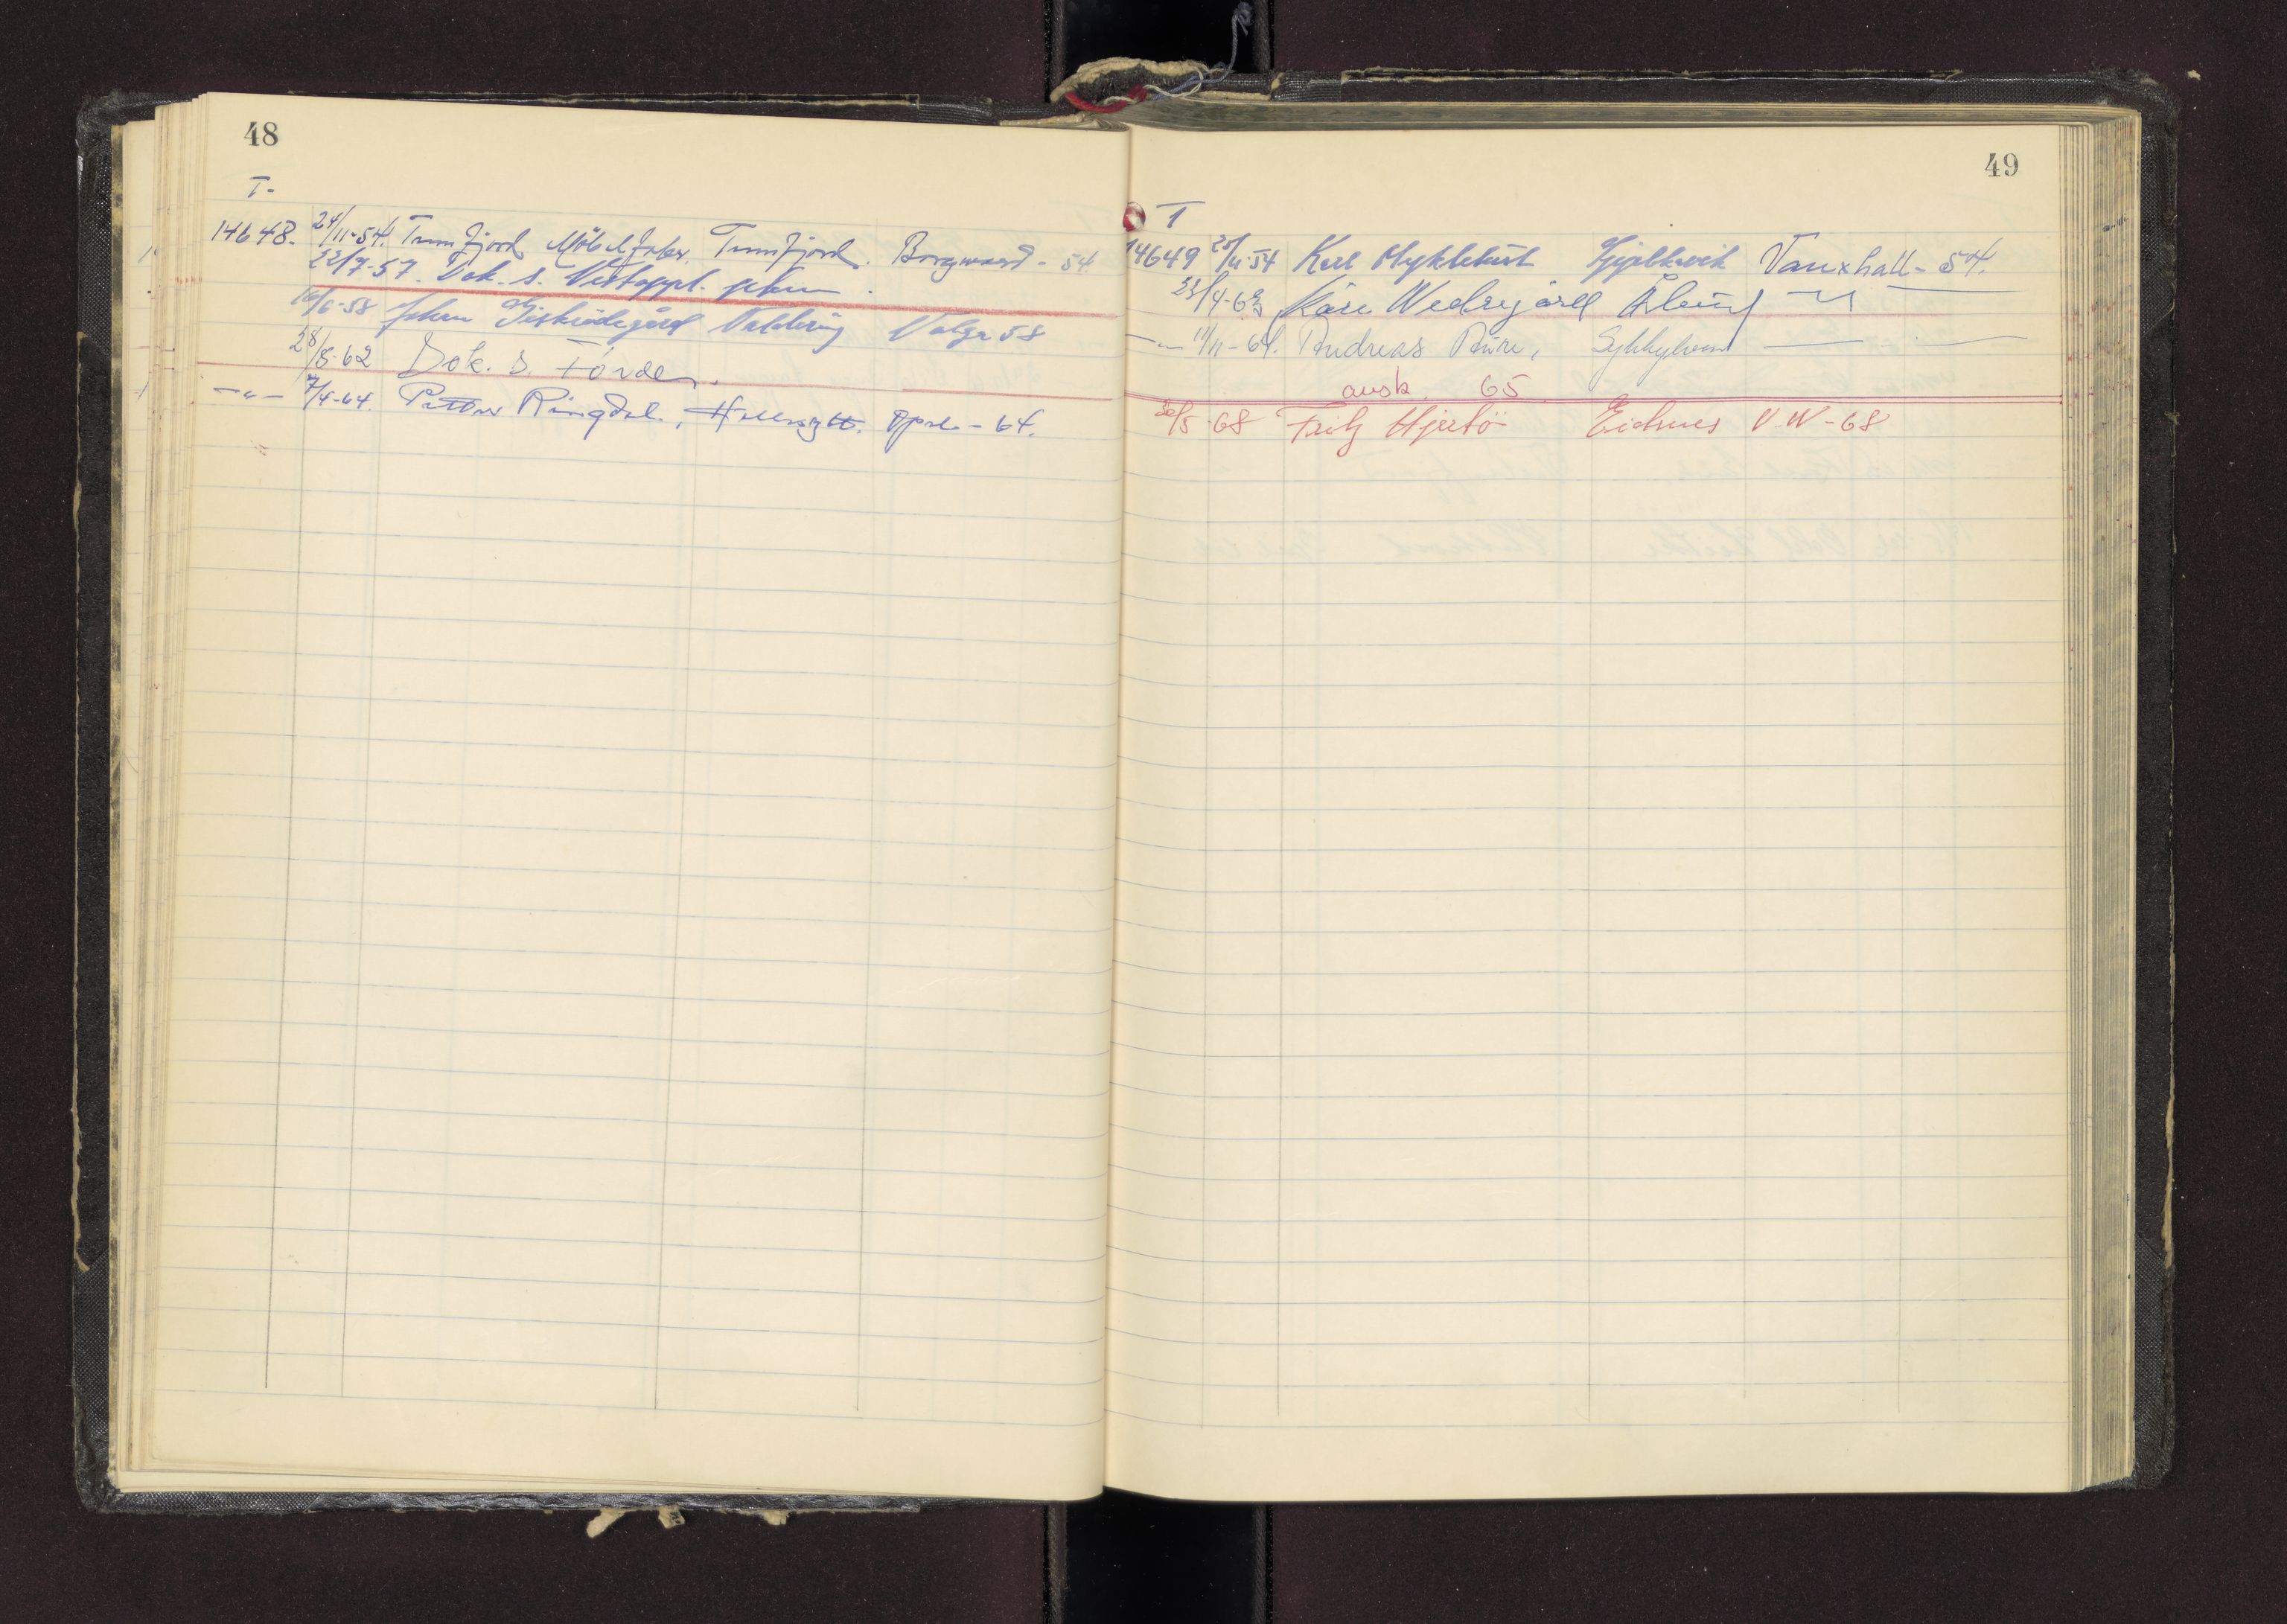 48
T-
14648. 24/11-54. Tumfjord Möbelfabr. Tumfjord. Borgward - 54
22/7-57. Dok. s. Vestoppl.
10/6-58 Johan Giskeödegård Valderöy Volga 58
28/8-62 Dok. s. Förde
-"- 7/4-64. Petter Ringdal, Hellesylt. Opel - 64.
49
T
14649 25/11-54 Karl Myklebust Vauxhall - 54.
23/4-63 Kåre Ålesund -"-
-"- 11/11-64. Andreas Aure, Sykkylven
avsk. 65
30/5-68 Fritz Hjertö Eidsnes V-W-68